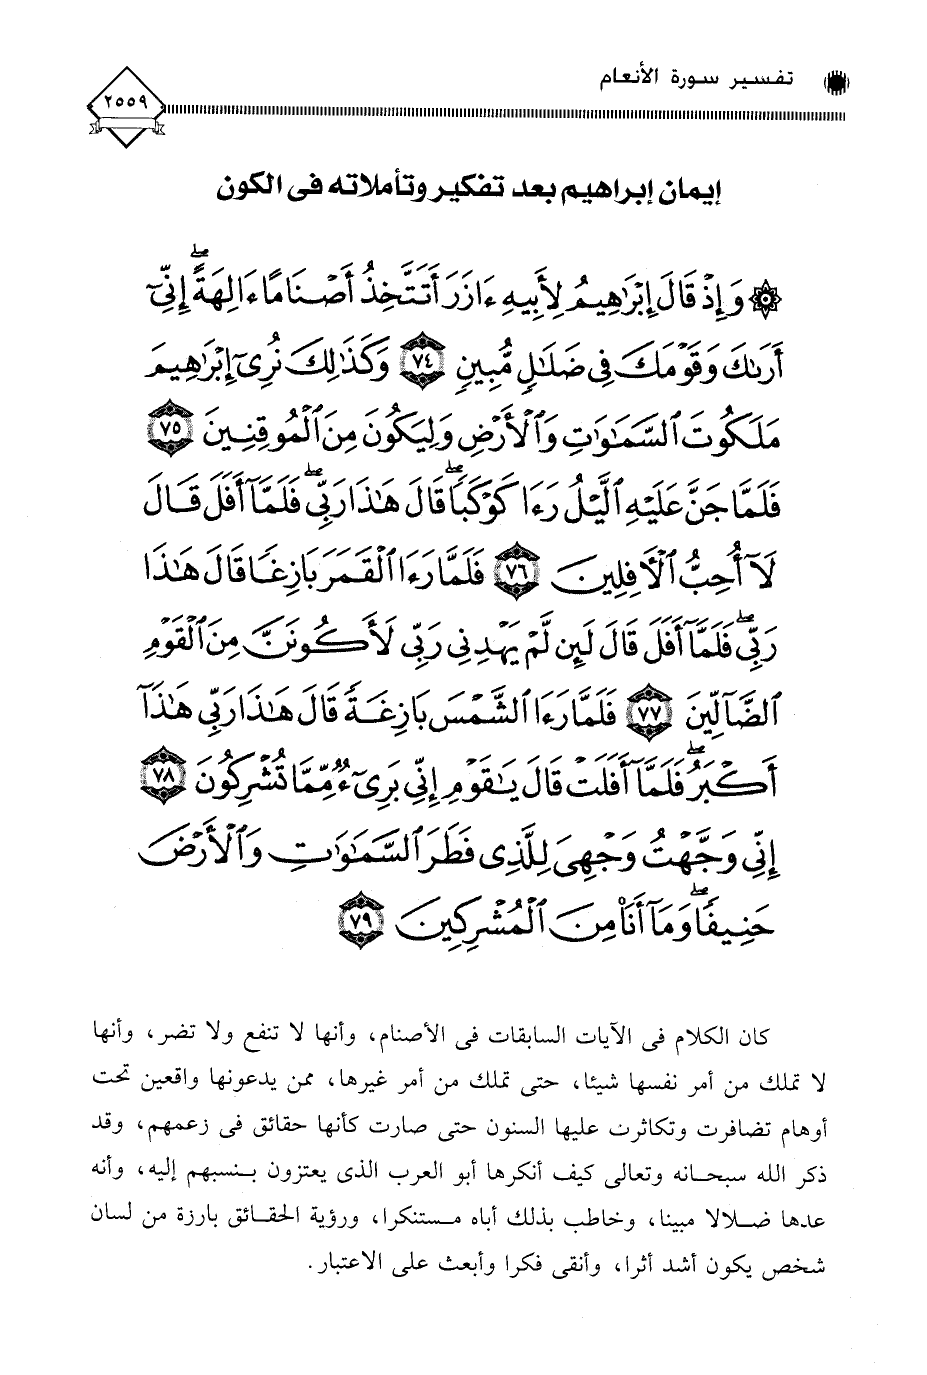 تفسير سورة الأنعام
٢٥٥٩
إيمان إبراهيم بعد تفكير وتأملاته فى الكون
۞ وَإِذْ قَالَ إِبْرَٰهِيمُ لِأَبِيهِ ءَازَرَ أَتَتَّخِذُ أَصْنَامًا ءَالِهَةً ۖ إِنِّىٓ
أَرَىٰكَ وَقَوْمَكَ فِى ضَلَٰلٍ مُّبِينٍ ٧٤ وَكَذَٰلِكَ نُرِىٓ إِبْرَٰهِيمَ
مَلَكُوتَ ٱلسَّمَٰوَٰتِ وَٱلْأَرْضِ وَلِيَكُونَ مِنَ ٱلْمُوقِنِينَ ٧٥
فَلَمَّا جَنَّ عَلَيْهِ ٱلَّيْلُ رَءَا كَوْكَبًا ۖ قَالَ هَٰذَا رَبِّى ۖ فَلَمَّآ أَفَلَ قَالَ
لَآ أُحِبُّ ٱلْأَفِلِينَ ٧٦ فَلَمَّا رَءَا ٱلْقَمَرَ بَازِغًا قَالَ هَٰذَا
رَبِّى ۖ فَلَمَّآ أَفَلَ قَالَ لَئِن لَّمْ يَهْدِنِى رَبِّى لَأَكُونَنَّ مِنَ ٱلْقَوْمِ
ٱلضَّآلِّينَ ٧٧ فَلَمَّا رَءَا ٱلشَّمْسَ بَازِغَةً قَالَ هَٰذَا رَبِّى هَٰذَآ
أَكْبَرُ ۖ فَلَمَّآ أَفَلَتْ قَالَ يَٰقَوْمِ إِنِّى بَرِىٓءٌ مِّمَّا تُشْرِكُونَ ٧٨
إِنِّى وَجَّهْتُ وَجْهِىَ لِلَّذِى فَطَرَ ٱلسَّمَٰوَٰتِ وَٱلْأَرْضَ
حَنِيفًا ۖ وَمَآ أَنَا۠ مِنَ ٱلْمُشْرِكِينَ ٧٩
كان الكلام فى الآيات السابقات فى الأصنام، وأنها لا تنفع ولا تضر، وأنها
لا تملك من أمر نفسها شيئا، حتى تملك من أمر غيرها، ممن يدعونها واقعين تحت
أوهام تضافرت وتكاثرت عليها السنون حتى صارت كأنها حقائق فى زعمهم، وقد
ذكر الله سبحانه وتعالى كيف أنكرها أبو العرب الذى يعتزون بنسبهم إليه، وأنه
عدها ضلالا مبينا، وخاطب بذلك أباه مستنكرا، ورؤية الحقائق بارزة من لسان
شخص يكون أشد أثرا، وأنقى فكرا وأبعث على الاعتبار.